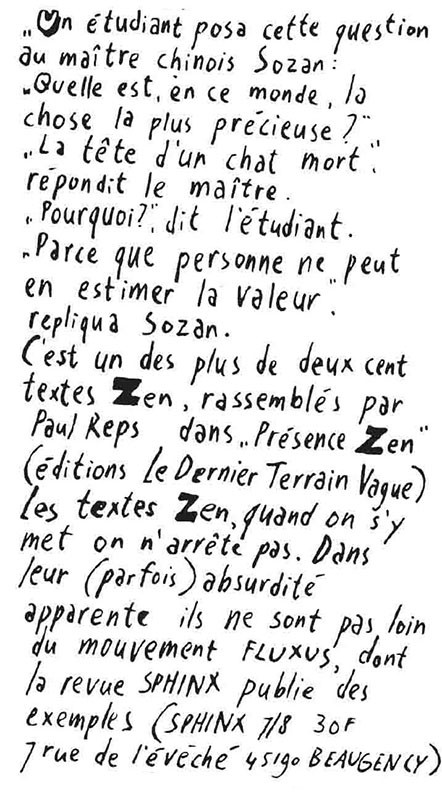 „Un étudiant posa cette question
au maître chinois Sozan:
„Quelle est, en ce monde, la
chose la plus précieuse?"
„La tête d'un chat mort".
répondit le maître.
„Pourquoi?", dit l'étudiant.
„Parce que personne ne peut
en estimer la valeur".
repliqua Sozan.
C'est un des plus de deux cent
textes Zen, rassemblés par
Paul Reps dans „Présence Zen"
(éditions Le Dernier Terrain Vague)
Les textes Zen, quand on s'y
met on n'arrête pas. Dans
leur (parfois) absurdité
apparente ils ne sont pas loin
du mouvement FLUXUS, dont
la revue SPHINX publie des
exemples (SPHINX 7/8 30F
7 rue de l'évêché 45190 BEAUGENCY)